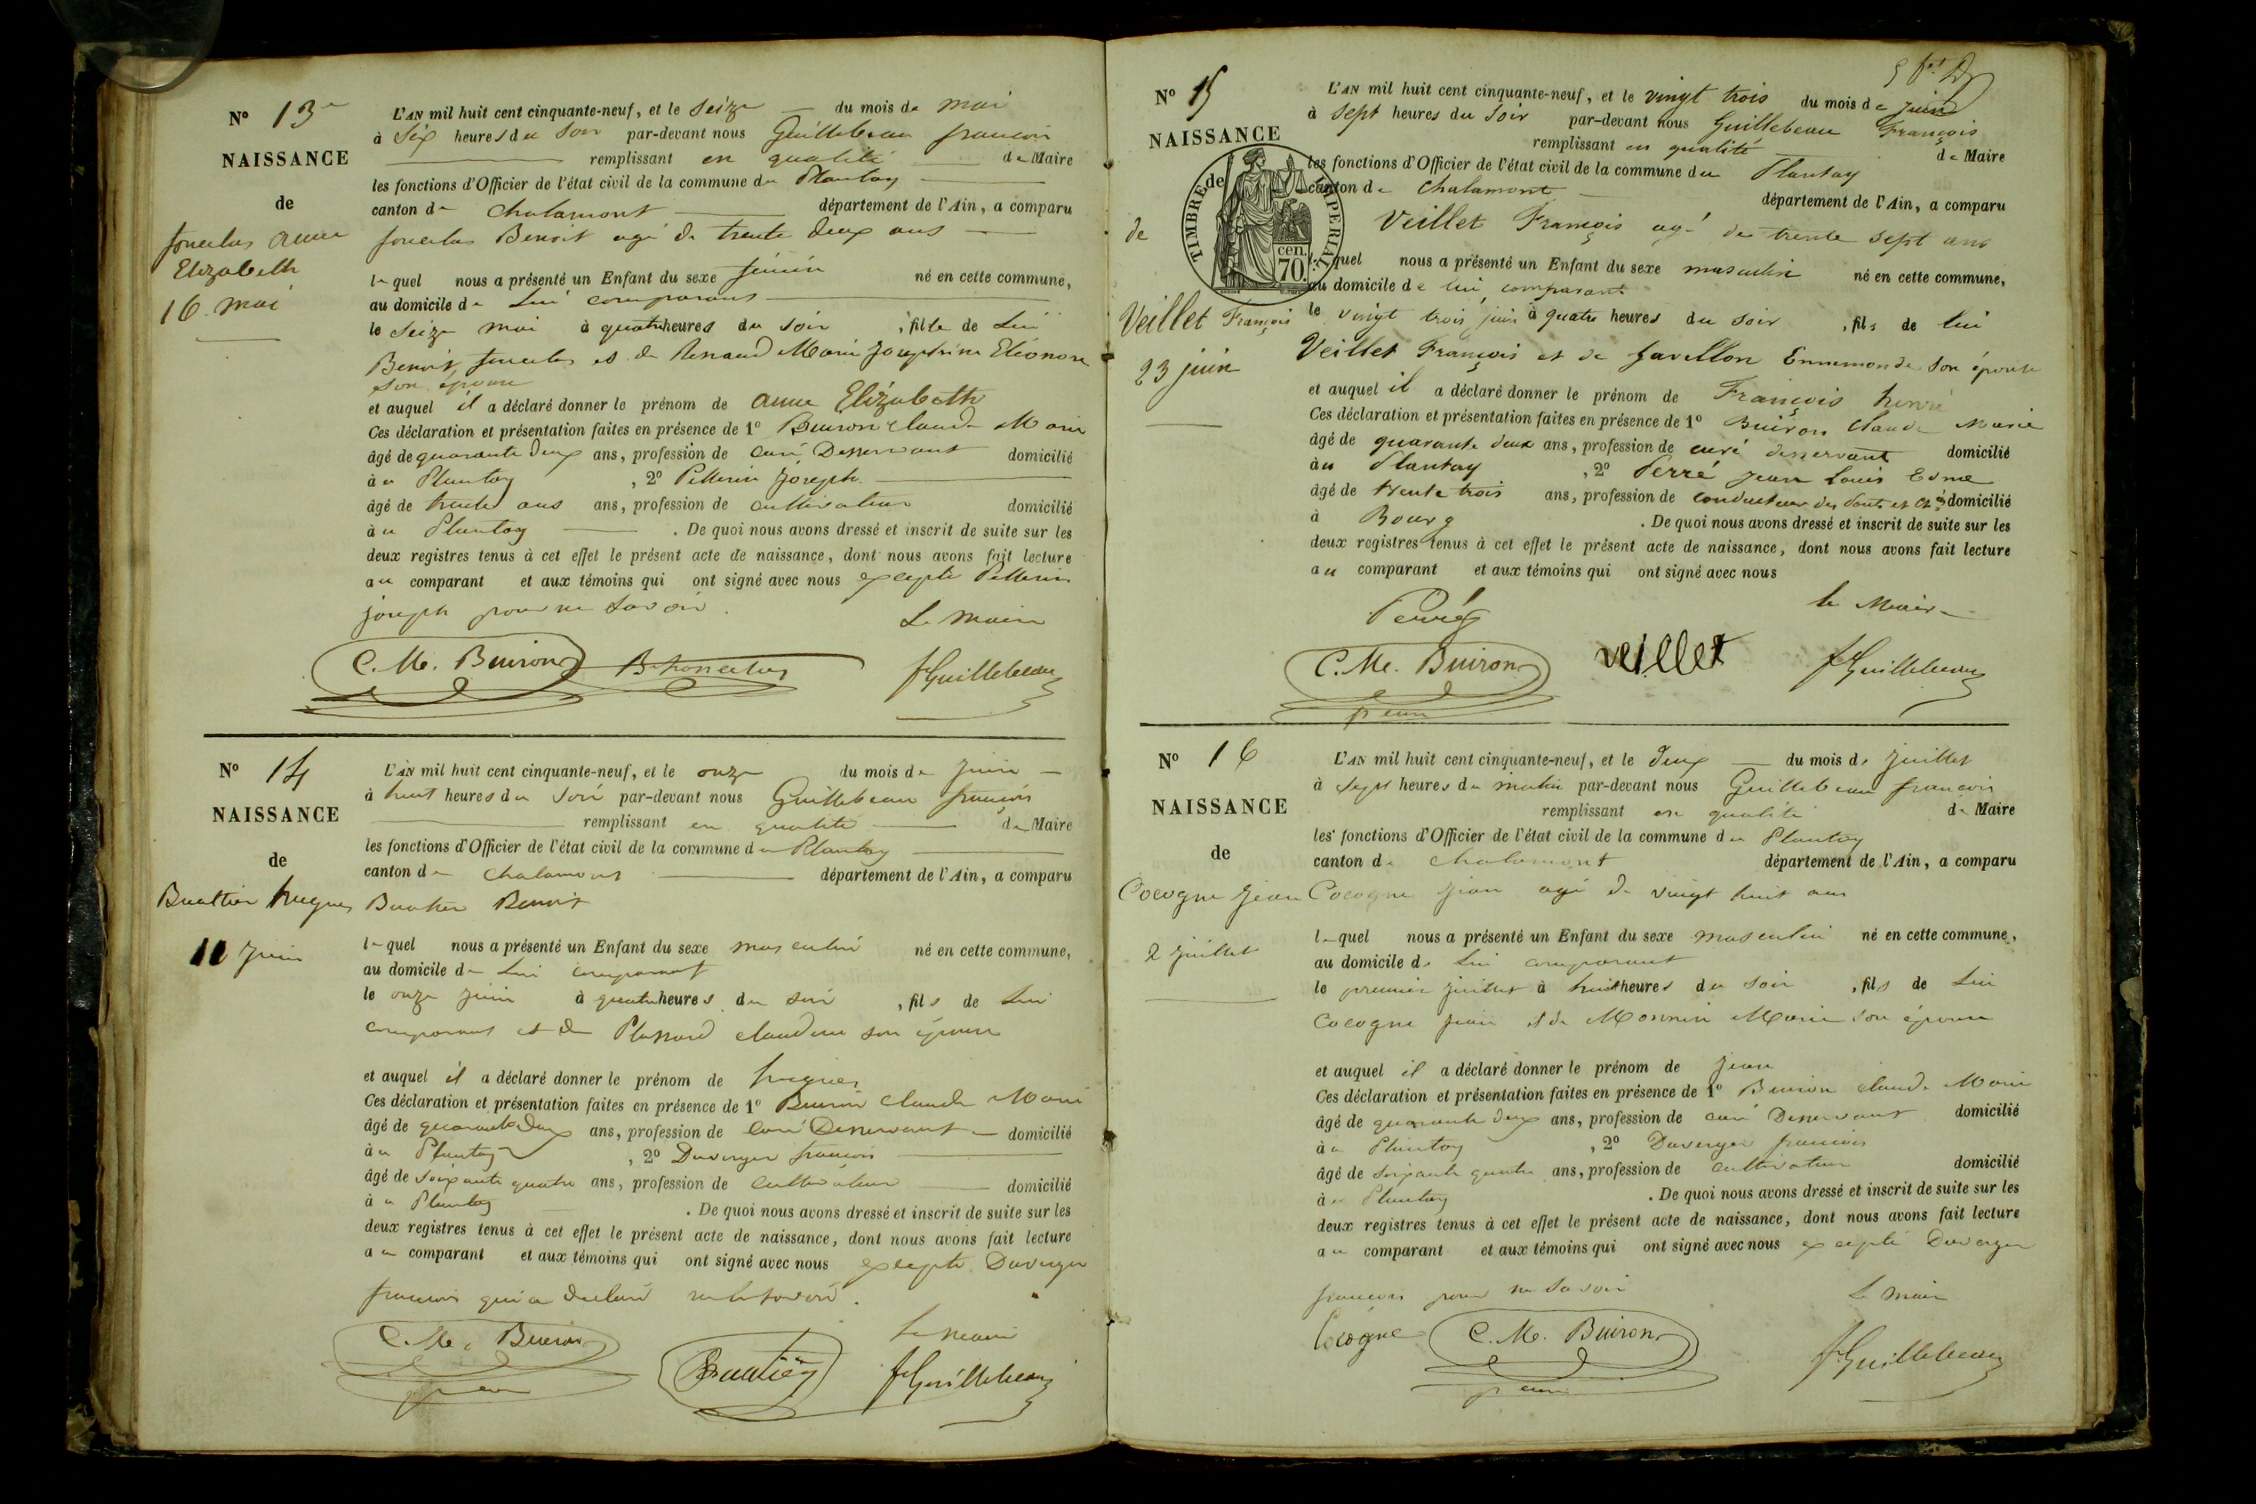 N° 13
NAISSANCE
de
Anna
Elizabeth
16 mai
L'AN mil huit cent cinquante-neuf, et le seize du mois de mai
à Six heures du Soir par-devant nous Guillebeau françois
remplissant en qualité de Maire
les fonctions d'Officier de l'état civil de la commune du Plantay
canton de Chalamont département de l'Ain, a comparu
Benoit agé de trente deux ans
lequel nous a présenté un Enfant du sexe féminin né en cette commune,
au domicile de Lui comparant
le Seize mai à quatre heures du Soir , fille de Lui
Benoit et de Renaud Marie Josephine Eléonore
son épouse
et auquel il a déclaré donner le prénom de anna Elizabeth
Ces déclaration et présentation faites en présence de 1° Buiron Claude Marie
âgé de quarante deux ans, profession de Curé Desservant domicilié
à u Plantay , 2° Pellerin Joseph
âgé de trente ans ans, profession de cultivateur domicilié
à u Plantay . De quoi nous avons dressé et inscrit de suite sur les
deux registres tenus à cet effet le présent acte de naissance, dont nous avons fait lecture
au comparant et aux témoins qui ont signé avec nous excepté Pellerin
joseph pour ne Savoir.
Le Maire
C. M. Buiron fGuillebeau
N° 14
NAISSANCE
de
hugues
11 Juin
L'AN mil huit cent cinquante-neuf, et le onze du mois de Juin
à huit heures du Soir par-devant nous Guillebeau françois
remplissant en qualité de Maire
les fonctions d'Officier de l'état civil de la commune du Plantay
canton de Chalamont département de l'Ain, a comparu
Benoit
lequel nous a présenté un Enfant du sexe masculin né en cette commune,
au domicile de Lui comparant
le onze juin à quatre heures du soir , fils de Lui
comparant et de claudine son épouse
et auquel il a déclaré donner le prénom de hugues
Ces déclaration et présentation faites en présence de 1° Buiron Claude Marie
âgé de quarante deux ans, profession de Curé Desservant domicilié
à u Plantay , 2° Duverger françois
âgé de soixante quatre ans, profession de cultivateur domicilié
à u Plantay . De quoi nous avons dressé et inscrit de suite sur les
deux registres tenus à cet effet le présent acte de naissance, dont nous avons fait lecture
au comparant et aux témoins qui ont signé avec nous excepté Duverger
françois qui a déclaré ne le savoir.
Le maire
C. M. Buiron fGuillebeau
N° 15
NAISSANCE
de
TIMBRE IMPERIAL
cen. 70
de
Veillet François
23 juin
L'AN mil huit cent cinquante-neuf, et le vingt trois du mois de juin
à sept heures du soir par-devant nous Guillebeau François
remplissant en qualité de Maire
les fonctions d'Officier de l'état civil de la commune du Plantay
canton de Chalamont département de l'Ain, a comparu
Veillet François agé de trente sept ans
lequel nous a présenté un Enfant du sexe masculin né en cette commune,
au domicile de lui comparant
le vingt trois juin à quatre heures du soir , fils de lui
Veillet François et de Javellon Ennemonde son épouse
et auquel il a déclaré donner le prénom de François henri
Ces déclaration et présentation faites en présence de 1° Buiron Claude Marie
âgé de quarante deux ans, profession de curé desservant domicilié
à u Plantay , 2° Perré Jean Louis Edme
âgé de trente trois ans, profession de conducteur des Ponts et Chées domicilié
à Bourg . De quoi nous avons dressé et inscrit de suite sur les
deux registres tenus à cet effet le présent acte de naissance, dont nous avons fait lecture
au comparant et aux témoins qui ont signé avec nous
Perré le Maire
C. M. Buiron veillet fGuillebeau
N° 16
NAISSANCE
de
Cocogne Jean
2 juillet
L'AN mil huit cent cinquante-neuf, et le Deux du mois de Juillet
à Sept heures du matin par-devant nous Guillebeau françois
remplissant en qualité de Maire
les fonctions d'Officier de l'état civil de la commune du Plantay
canton de Chalamont département de l'Ain, a comparu
Cocogne Jean agé de vingt huit ans
lequel nous a présenté un Enfant du sexe masculin né en cette commune,
au domicile de Lui comparant
le premier juillet à huit heures du soir , fils de Lui
Cocogne jean et de Monnin Marie son épouse
et auquel il a déclaré donner le prénom de Jean
Ces déclaration et présentation faites en présence de 1° Buiron Claude Marie
âgé de quarante deux ans, profession de curé Desservant domicilié
à u Plantay , 2° Duverger françois
âgé de soixante quatre ans, profession de cultivateur domicilié
à u Plantay . De quoi nous avons dressé et inscrit de suite sur les
deux registres tenus à cet effet le présent acte de naissance, dont nous avons fait lecture
au comparant et aux témoins qui ont signé avec nous excepté Duverger
françois pour ne savoir
Le Maire
Cocogne C. M. Buiron fGuillebeau